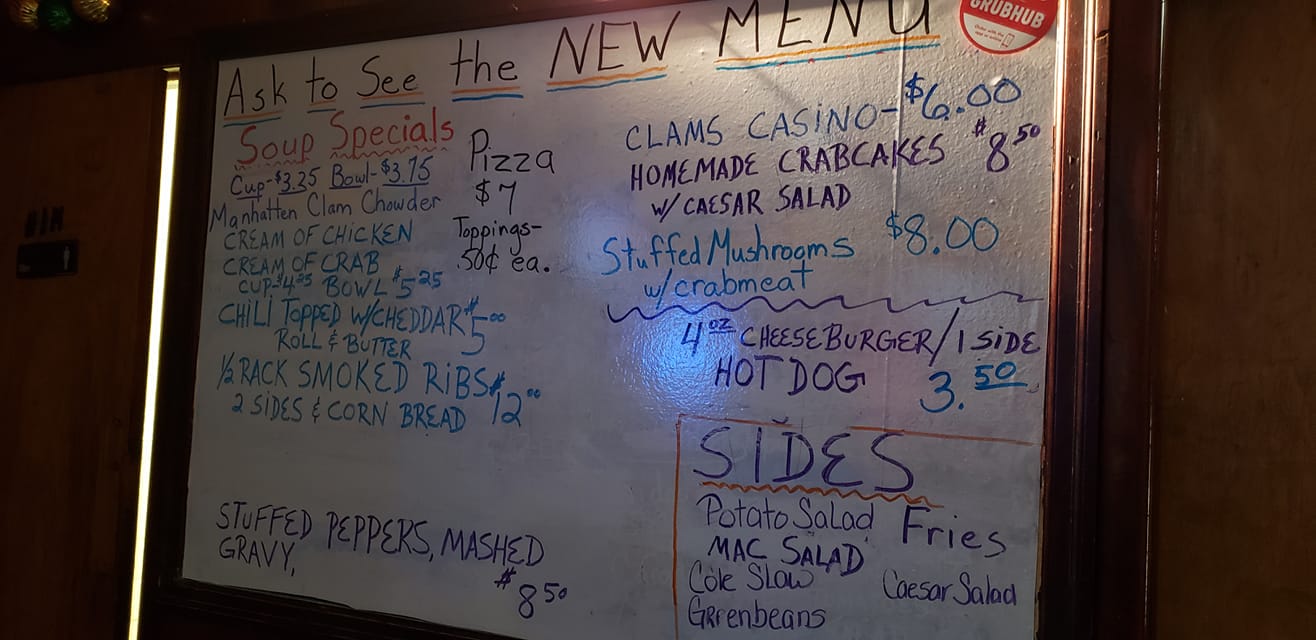 Ask to See the NEW MENU
GRUBHUB
Soup Specials
Cup-$3.25 Bowl-$3.75
Manhatten Clam Chowder
CREAM OF CHICKEN
CREAM OF CRAB
CUP-$4.25 BOWL $5.25
CHILI TOPPED W/CHEDDAR $5.00
ROLL & BUTTER
1/2 RACK SMOKED RIBS $12.00
2 SIDES & CORN BREAD
STUFFED PEPPERS, MASHED
GRAVY,
$8.50
Pizza
$7
Toppings-
.50¢ ea.
CLAMS CASINO- $6.00
HOMEMADE CRABCAKES $8.50
W/ CAESAR SALAD
Stuffed Mushrooms $8.00
w/crabmeat
4 oz CHEESEBURGER/1 SIDE
HOT DOG 3.50
SIDES
Potato Salad Fries
MAC SALAD
Cole Slow Caesar Salad
Grrenbeans